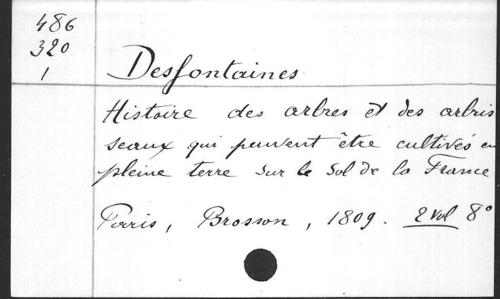 486
320
1
Desfontaines
Histoire des arbres et des arbris
seaux qui peuvent être cultivés en
pleine terre sur le sol de la France
Paris, Brosson, 1809. 2 vol 8°